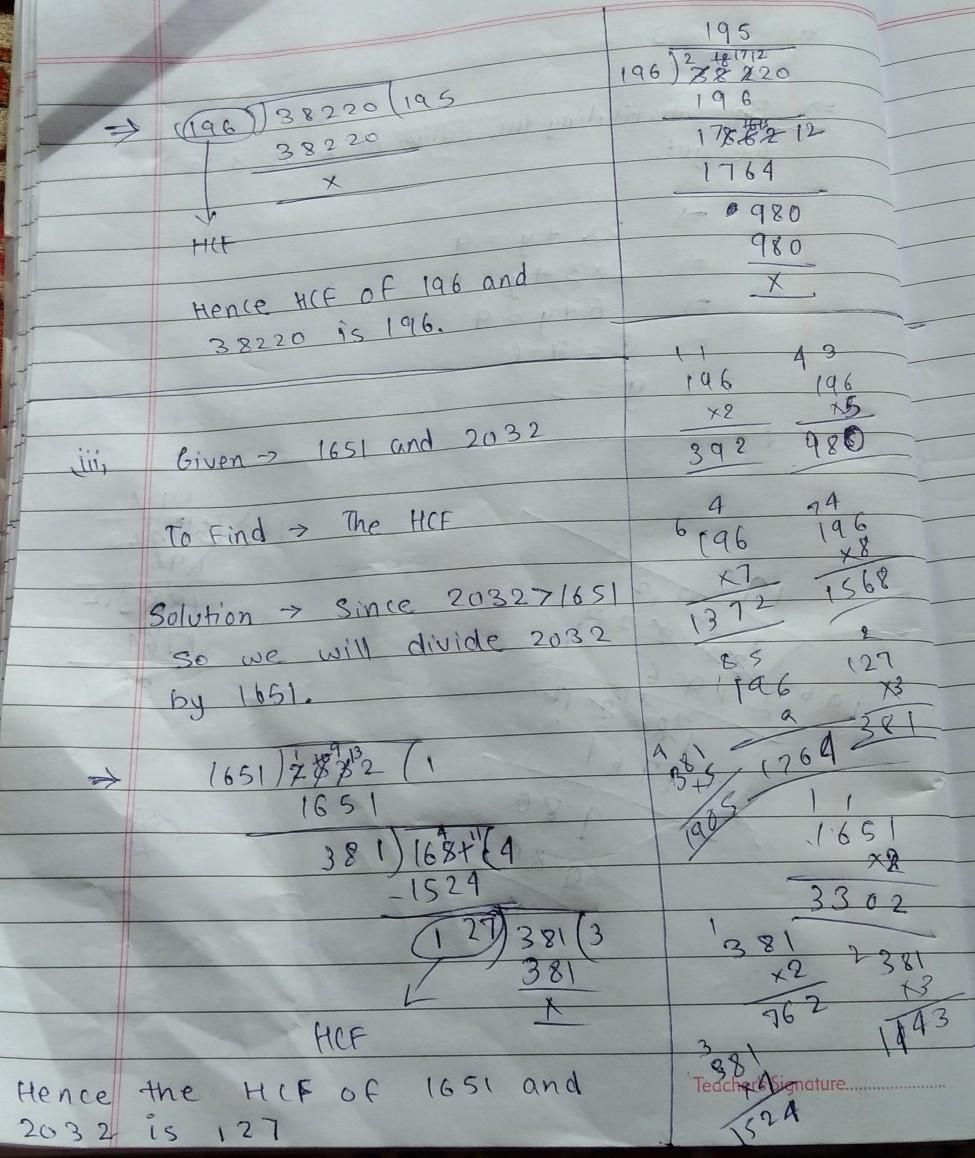 ⇒ 196 ) 38220 ( 195
38220
x
HCF
Hence HCF of 196 and
38220 is 196.
195
196 ) 38220
196
12
1764
980
980
x
iii, Given → 1651 and 2032
To Find → The HCF
Solution → Since 2032>1651
So we will divide 2032
by 1651.
⇒ 1651 ) 2032 ( 1
1651
381 ) 1651 ( 4
-1524
127 ) 381 ( 3
381
x
HCF
Hence the HCF of 1651 and
2032 is 127
1 1
196
x2
392
4 3
196
x5
980
6 4
196
x7
1372
7 4
196
x8
1568
8 5
196
9
1764
2
127
x3
381
4
381
x5
1905
1 1
1651
x2
3302
1
381
x2
762
2
381
x3
1143
3
381
x4
1524
Teacher's Signature